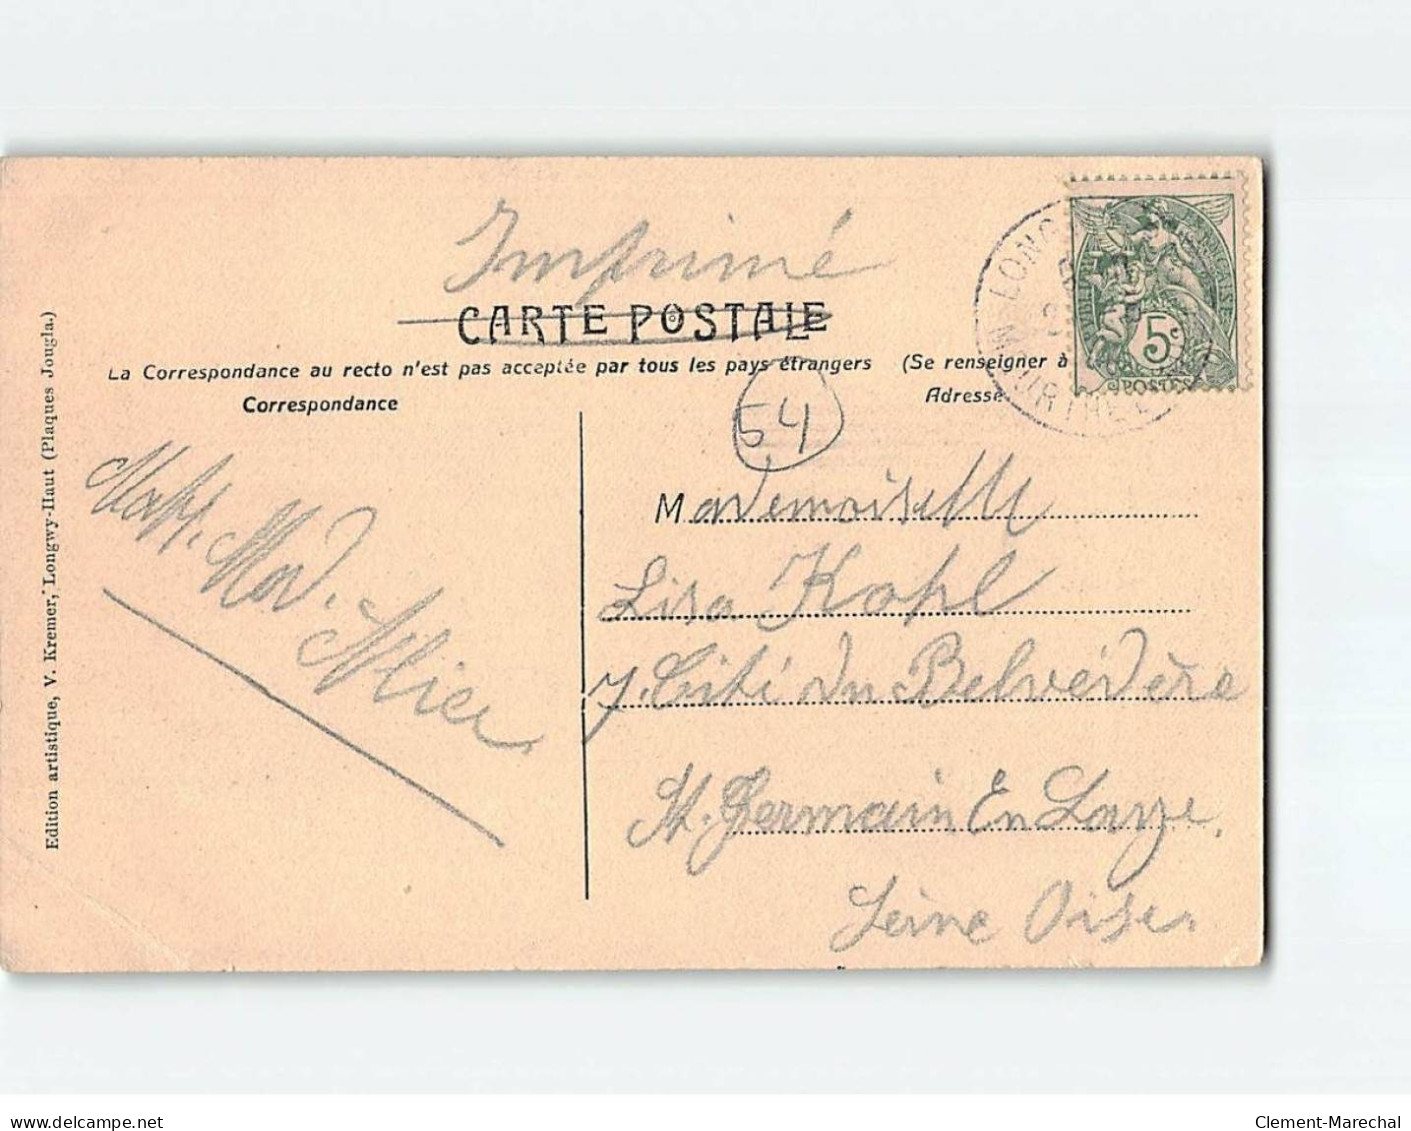 Imprimé
CARTE POSTALE
La Correspondance au recto n'est pas acceptée par tous les pays étrangers (Se renseigner à
Correspondance
Adresse
54
5c
POSTES
Mademoiselle
Lisa Kohl
7. Cité du Belvédère
St. Germain En Laye.
Seine Oise
Edition artistique, V. Kremer, Longwy-Haut (Plaques Jougla.)
www.delcampe.net
Clement-Marechal